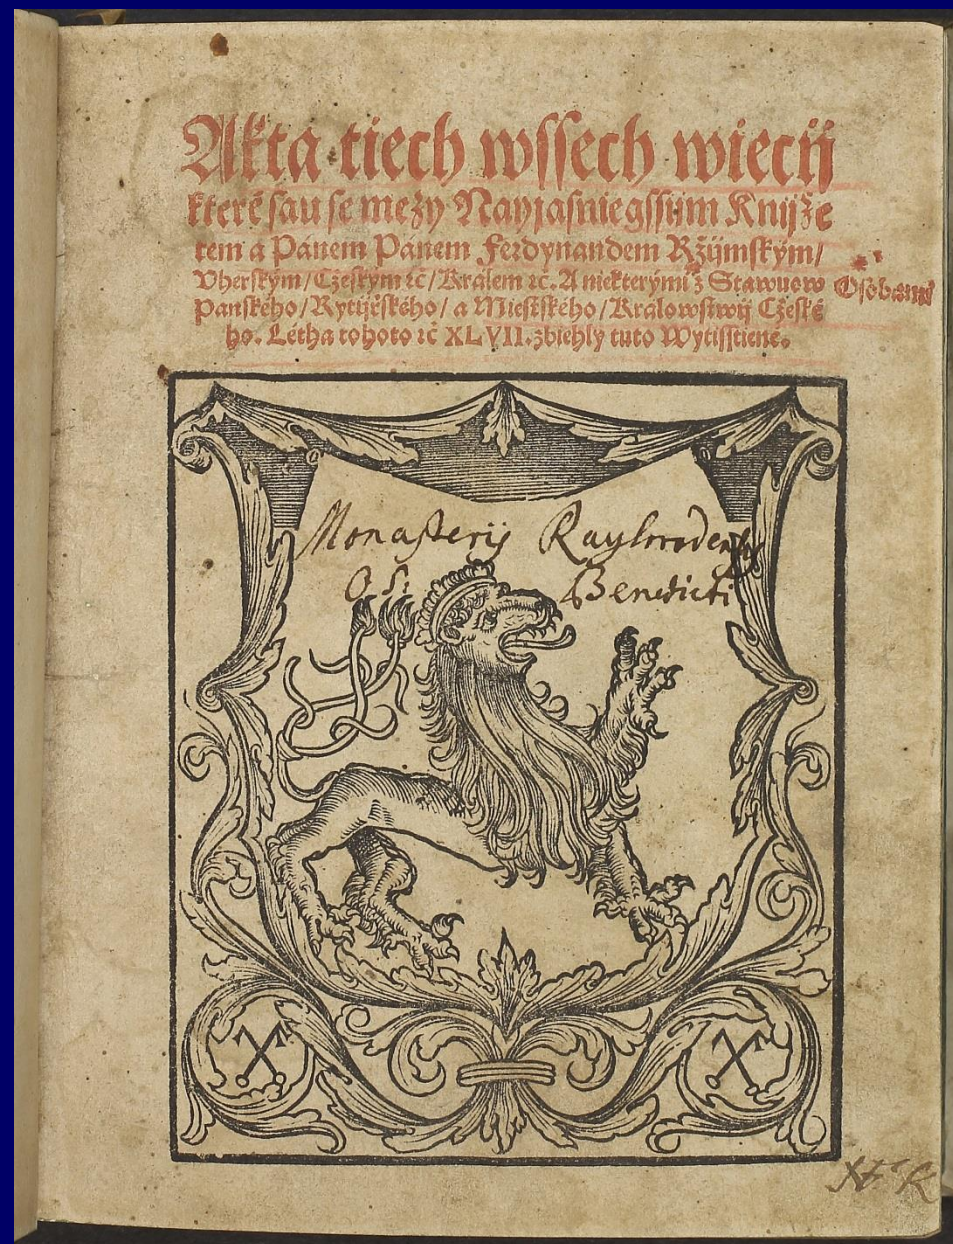 Akta tiech wssech wiecij
kteréž sau se mezy Nayjasniegssijm Knijže
tem a Pánem Pánem Ferdynandem Ržijmským/
Vherským/ Cžeským ꝛč/ Králem ꝛč. A niekterými z Stawuow Osobami
Panského/ Rytijržského/ a Miestského/ Králowstwij Cžeské
ho. Létha tohoto ꝛč XLVII. zbiehly tuto Wytisstiené.
Monasterij Rayhradensis
O. S. Benedicti